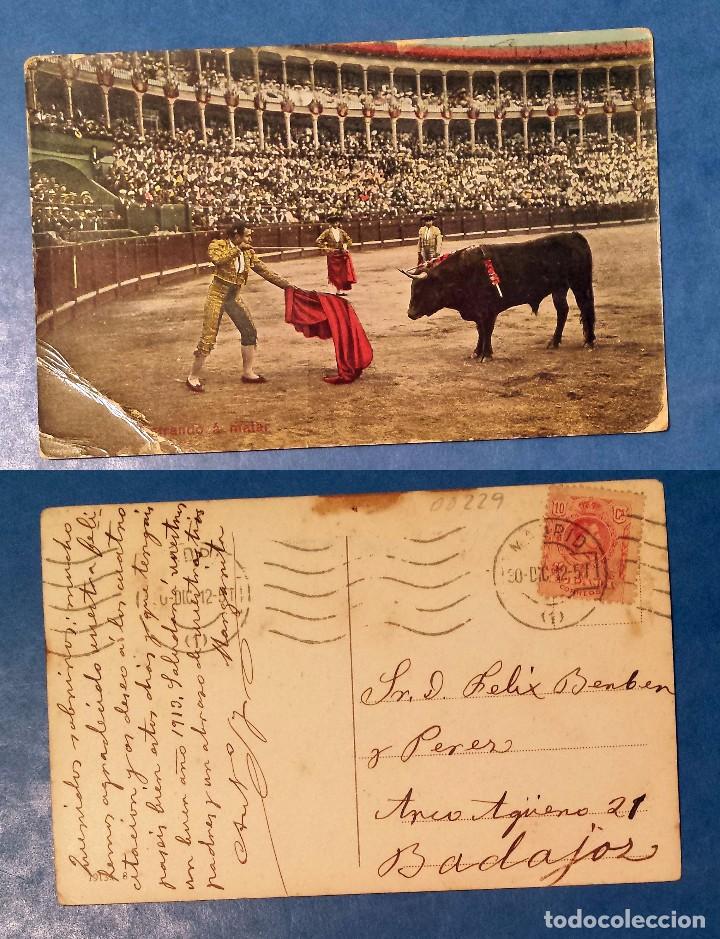 trando á matar
00229
10 Cs
CORREOS
MADRID
30-DIC 12-5T
(1)
-DIC 12-5T
Queridos sobrinos: mucho
hemos agradecido vuestra feli-
citación y os deseo á los cuatro
paseis bien estos dias y que tengais
un buen año 1913. Saludad á vuestros
padres y un abrazo de vuestra tia
Margarita
Sr. D. Felix Benben
y Perez
Arco Agüero 21
Badajoz
todocoleccion